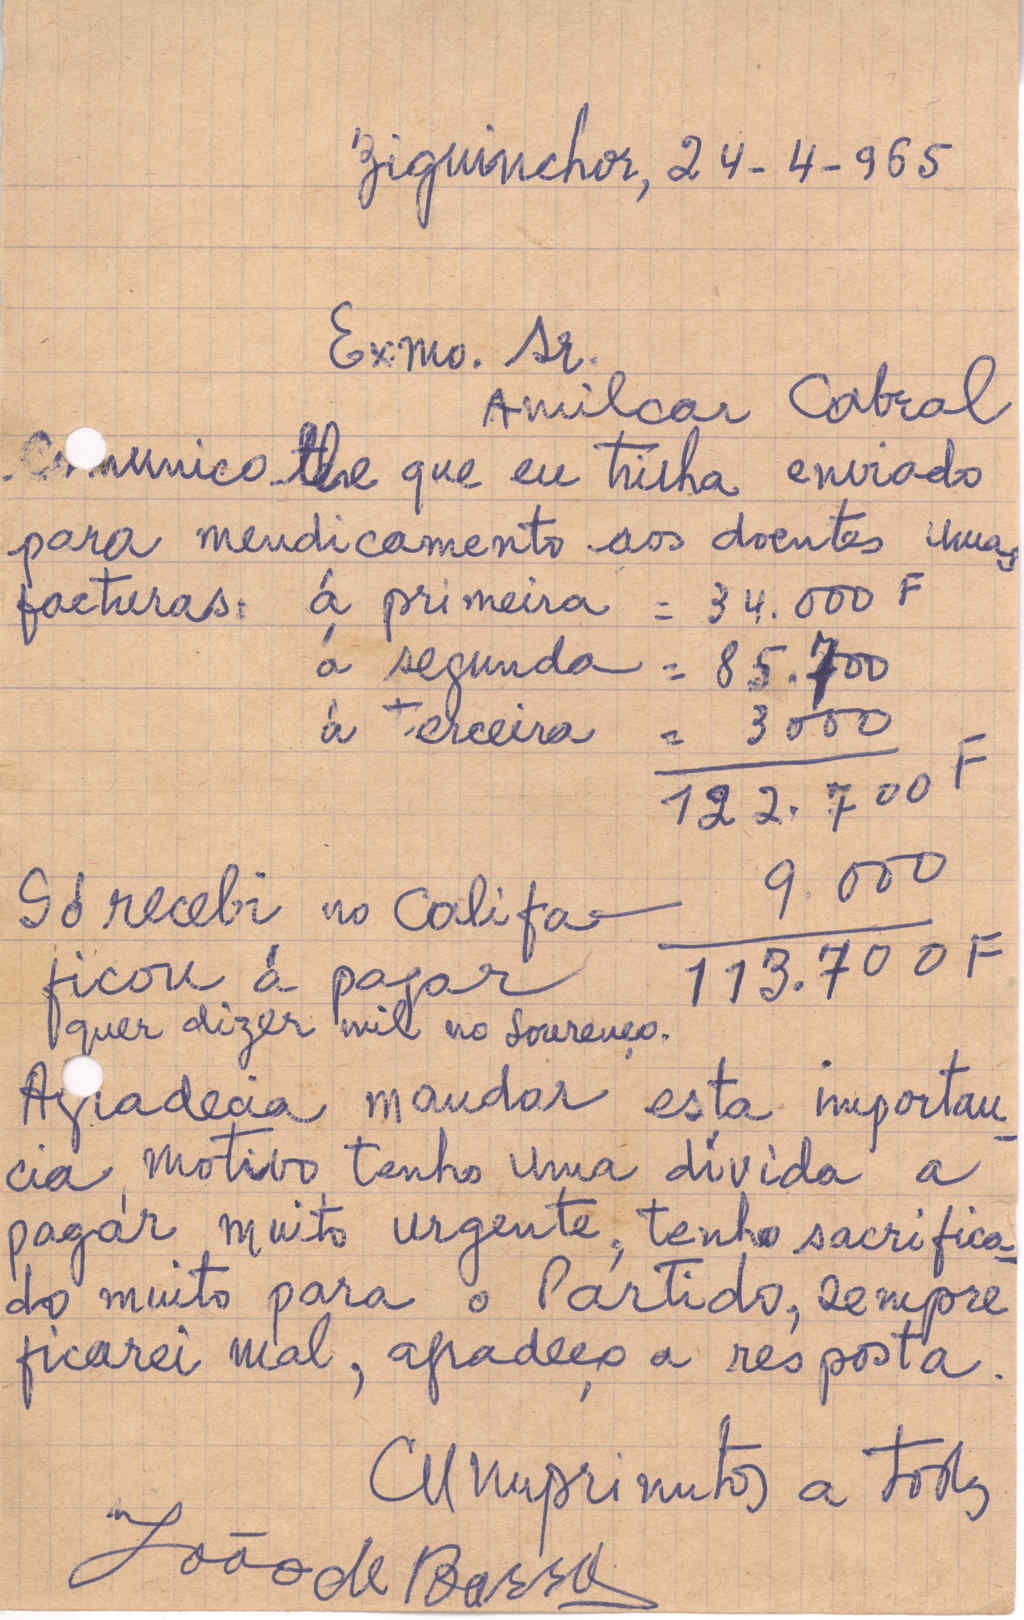 Ziguinchor, 24-4-965
Exmo. Sr.
Amilcar Cabral
Comunico lhe que eu tinha enviado
para mendicamento aos doentes umas
facturas: á primeira = 34.000 F
á segunda = 85.700
á terceira = 3000
122.700 F
9.000
Só recebi no Califa
ficou á pagar 113.700 F
quer dizer mil no Lourenço.
Agradecia mandar esta importan-
cia, motivo tenho uma dívida a
pagár muito urgente, tenho sacrifica-
do muito para o Partido, sempre
ficarei mal, agradeço a resposta.
Cumprimutos a todos
João de Bassa